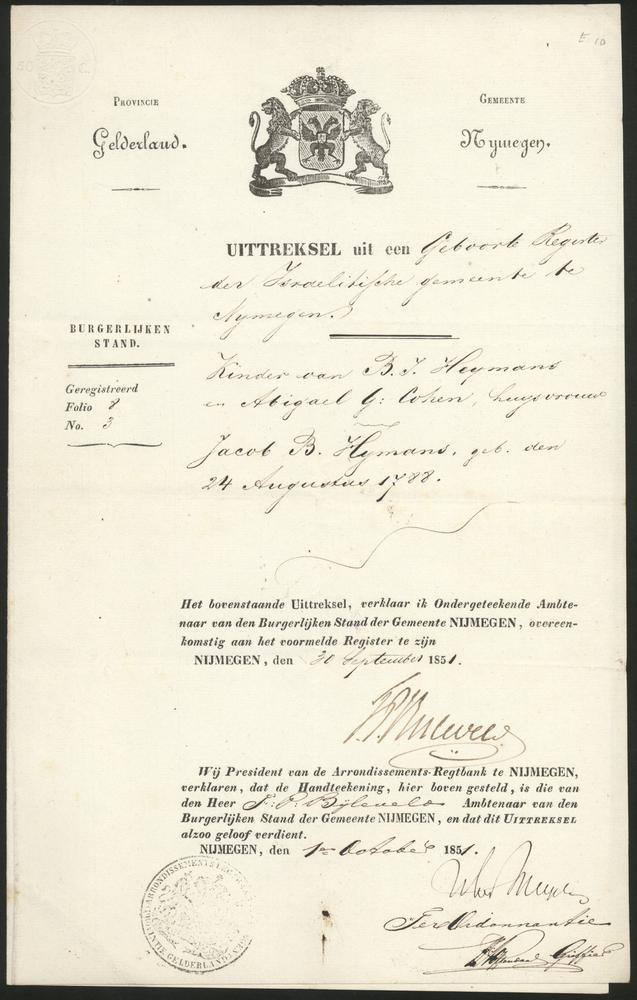 E 10
50 C.
PROVINCIE
Gelderland.
GEMEENTE
Nymegen.
UITTREKSEL uit een Geboorte Register
der Israelitische gemeente te
Nymegen.
BURGERLIJKEN
STAND.
Geregistreerd
Folio 8
No. 3
Kinder van B. J. Heymans
en Abigael G: Cohen, huysvrouw
Jacob B. Hymans, geb. den
24 Augustus 1788.
Het bovenstaande Uittreksel, verklaar ik Ondergeteekende Ambte-
naar van den Burgerlijken Stand der Gemeente NIJMEGEN, overeen-
komstig aan het voormelde Register te zijn
NIJMEGEN, den 30 September 1851.
F. P. Bijleveld
Wij President van de Arrondissements-Regtbank te NIJMEGEN,
verklaren, dat de Handteekening, hier boven gesteld, is die van
den Heer F: P. Bijleveld Ambtenaar van den
Burgerlijken Stand der Gemeente NIJMEGEN, en dat dit UITTREKSEL
alzoo geloof verdient.
NIJMEGEN, den 1en October 1851.
Ter Ordonnantie
Griffier